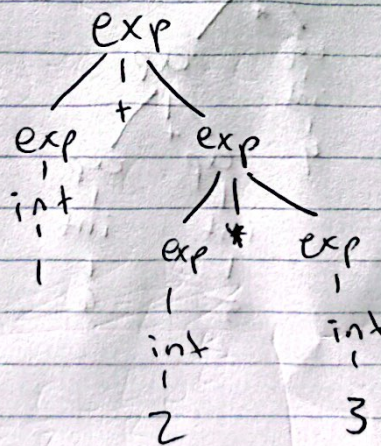 exp
+
exp exp
int
exp * exp
1
int int
2 3